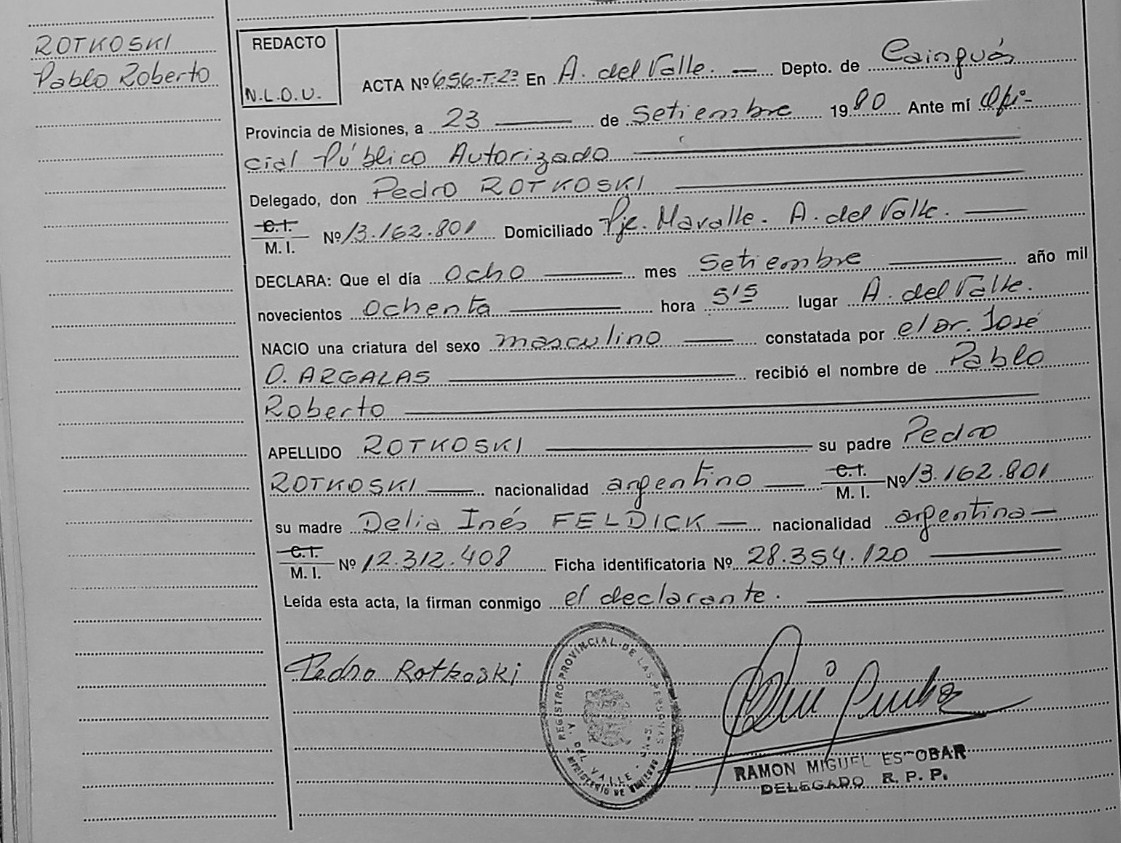 ROTKOSKI
Pablo Roberto
REDACTO
N.L.O.U.
ACTA Nº 656-T-2º En A. del Valle. — Depto. de Cainguás
Provincia de Misiones, a 23 — de Setiembre 1980 Ante mí Ofi-
cial Público Autorizado
Delegado, don Pedro ROTKOSKI
C.I.
M. I. Nº 13.162.801 Domiciliado Pje. Mavalle. A. del Valle.
DECLARA: Que el día Ocho — mes Setiembre — año mil
novecientos Ochenta — hora 5'5 lugar A. del Valle.
NACIO una criatura del sexo masculino — constatada por el Dr. José
O. ARGALAS — recibió el nombre de Pablo
Roberto
APELLIDO ROTKOSKI — su padre Pedro
ROTKOSKI — nacionalidad argentino — C.I. M. I. Nº 13.162.801
su madre Delia Inés FELDICK — nacionalidad argentina —
C.I.
M. I. Nº 12.312.408 Ficha identificatoria Nº 28.354.120
Leída esta acta, la firman conmigo el declarante.
Pedro Rotkoski
REGISTRO PROVINCIAL DE LAS PERSONAS
DEL VALLE
MINISTERIO DE
RAMON MIGUEL ESCOBAR
DELEGADO R. P. P.